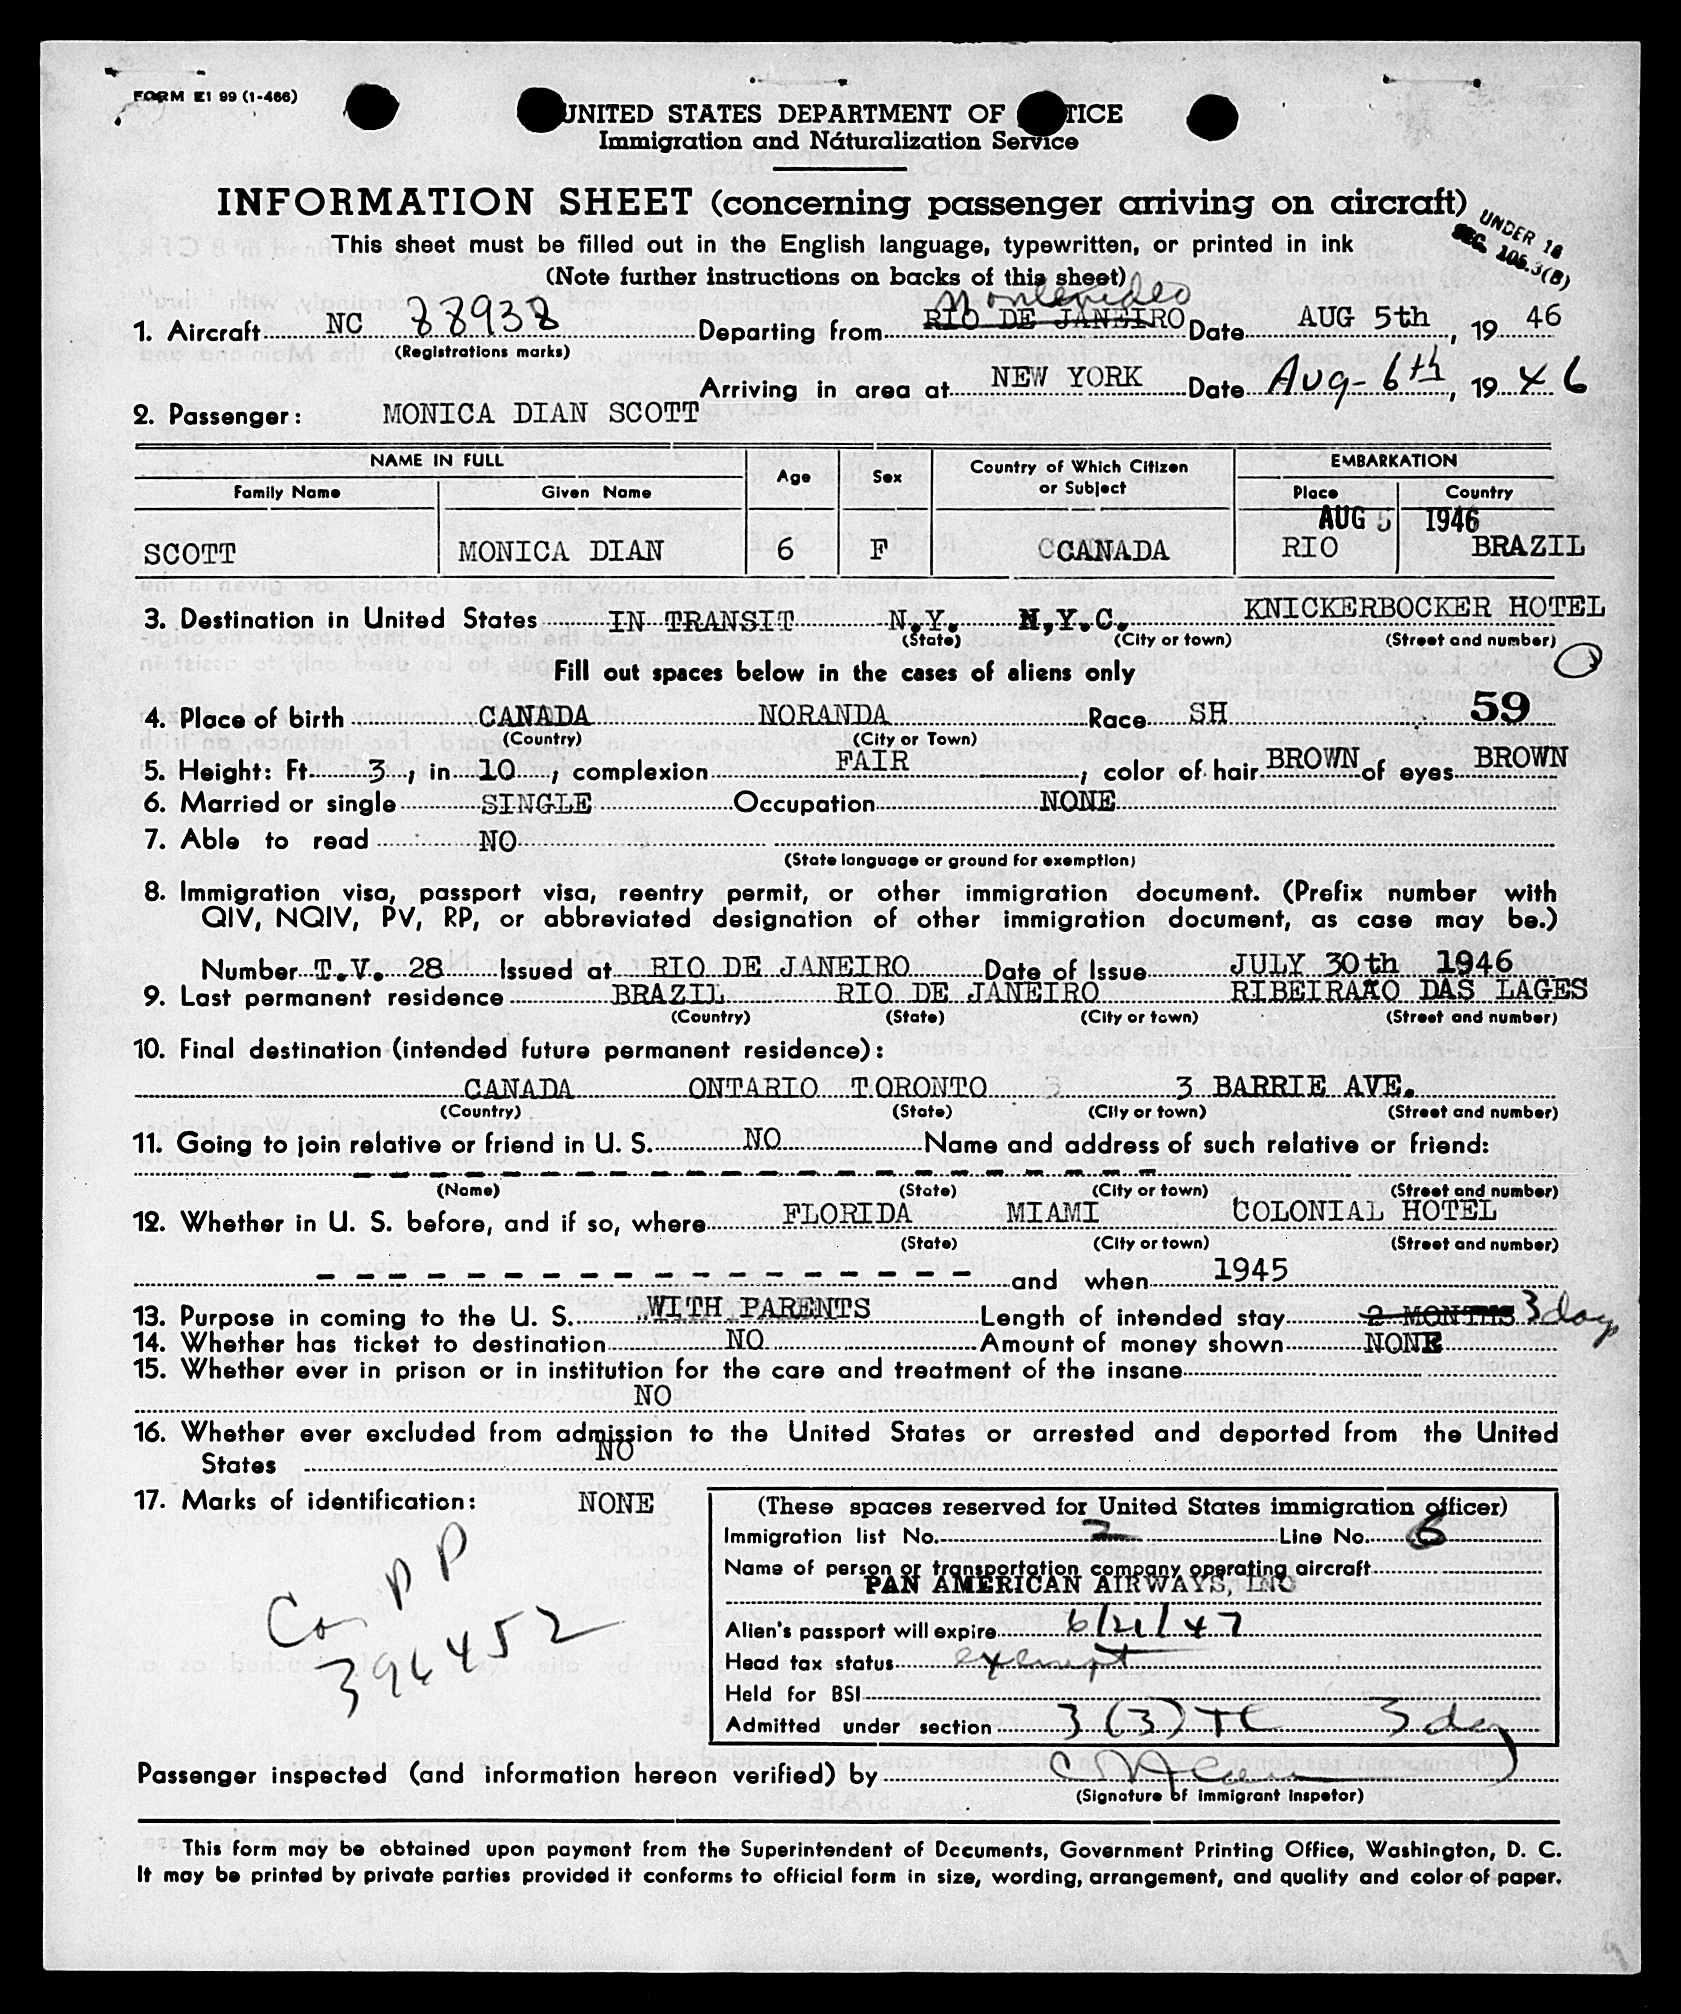 FORM E1 99 (1-466)
UNITED STATES DEPARTMENT OF TICE
Immigration and Naturalization Service
INFORMATION SHEET (concerning passenger arriving on aircraft)
UNDER 16
SEC. 105.3(B)
This sheet must be filled out in the English language, typewritten, or printed in ink
(Note further instructions on backs of this sheet)
Montevideo
1. Aircraft NC 88938 Departing from RIO DE JANEIRO Date AUG 5th, 19 46
(Registrations marks)
Arriving in area at NEW YORK Date Aug-6th, 19 46
2. Passenger: MONICA DIAN SCOTT
NAME IN FULL Age Sex Country of Which Citizen or Subject EMBARKATION
Family Name Given Name Place Country
AUG 5 1946
SCOTT MONICA DIAN 6 F CCANADA RIO BRAZIL
3. Destination in United States IN TRANSIT N.Y. N,Y.C. KNICKERBOCKER HOTEL
(State) (City or town) (Street and number)
Fill out spaces below in the cases of aliens only
59
4. Place of birth CANADA NORANDA Race SH
(Country) (City or Town)
5. Height: Ft. 3, in. 10, complexion FAIR; color of hair BROWN of eyes BROWN
6. Married or single SINGLE Occupation NONE
7. Able to read NO
(State language or ground for exemption)
8. Immigration visa, passport visa, reentry permit, or other immigration document. (Prefix number with
QIV, NQIV, PV, RP, or abbreviated designation of other immigration document, as case may be.)
Number T.V. 28 Issued at RIO DE JANEIRO Date of Issue JULY 30th 1946
9. Last permanent residence BRAZIL RIO DE JANEIRO RIBEIRAXO DAS LAGES
(Country) (State) (City or town) (Street and number)
10. Final destination (intended future permanent residence):
CANADA ONTARIO TORONTO 3 3 BARRIE AVE.
(Country) (State) (City or town) (Street and number)
11. Going to join relative or friend in U. S. NO Name and address of such relative or friend:
(Name) (State) (City or town) (Street and number)
12. Whether in U. S. before, and if so, where FLORIDA MIAMI COLONIAL HOTEL
(State) (City or town) (Street and number)
and when 1945
13. Purpose in coming to the U. S. WITH PARENTS Length of intended stay 2 MONTHS 3 day
14. Whether has ticket to destination NO Amount of money shown NONE
15. Whether ever in prison or in institution for the care and treatment of the insane
NO
16. Whether ever excluded from admission to the United States or arrested and deported from the United
States NO
17. Marks of identification: NONE
Can PP
396452
(These spaces reserved for United States immigration officer)
Immigration list No. 2 Line No. 6
Name of person or transportation company operating aircraft
PAN AMERICAN AIRWAYS, INC
Alien's passport will expire 6/21/47
Head tax status exempt
Held for BSI
Admitted under section 3 (3) TC 3 day
Passenger inspected (and information hereon verified) by
(Signature of immigrant inspetor)
This form may be obtained upon payment from the Superintendent of Documents, Government Printing Office, Washington, D. C.
It may be printed by private parties provided it conforms to official form in size, wording, arrangement, and quality and color of paper.